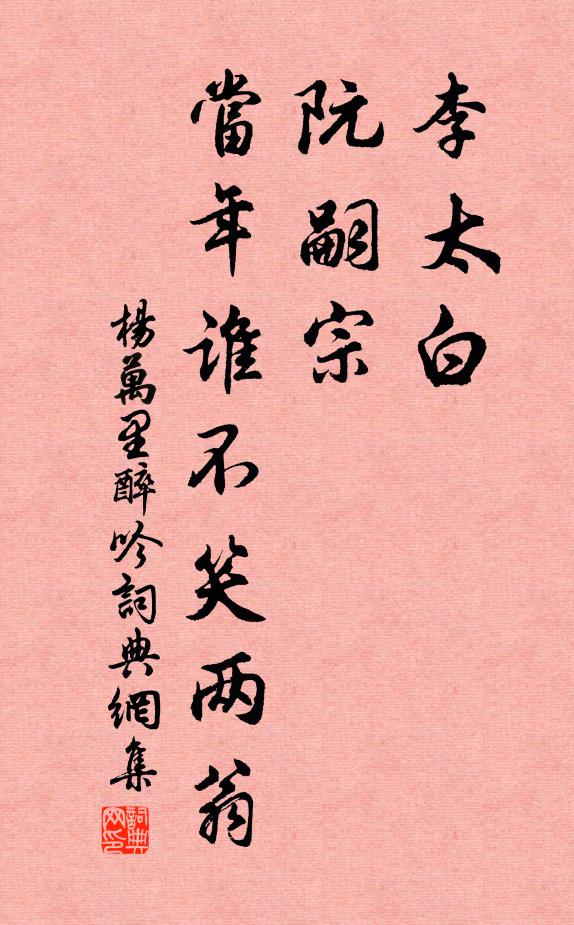 李太白
阮嗣宗
當年誰不笑两翁
楊萬里醉吟詞典網集
詞典
网印